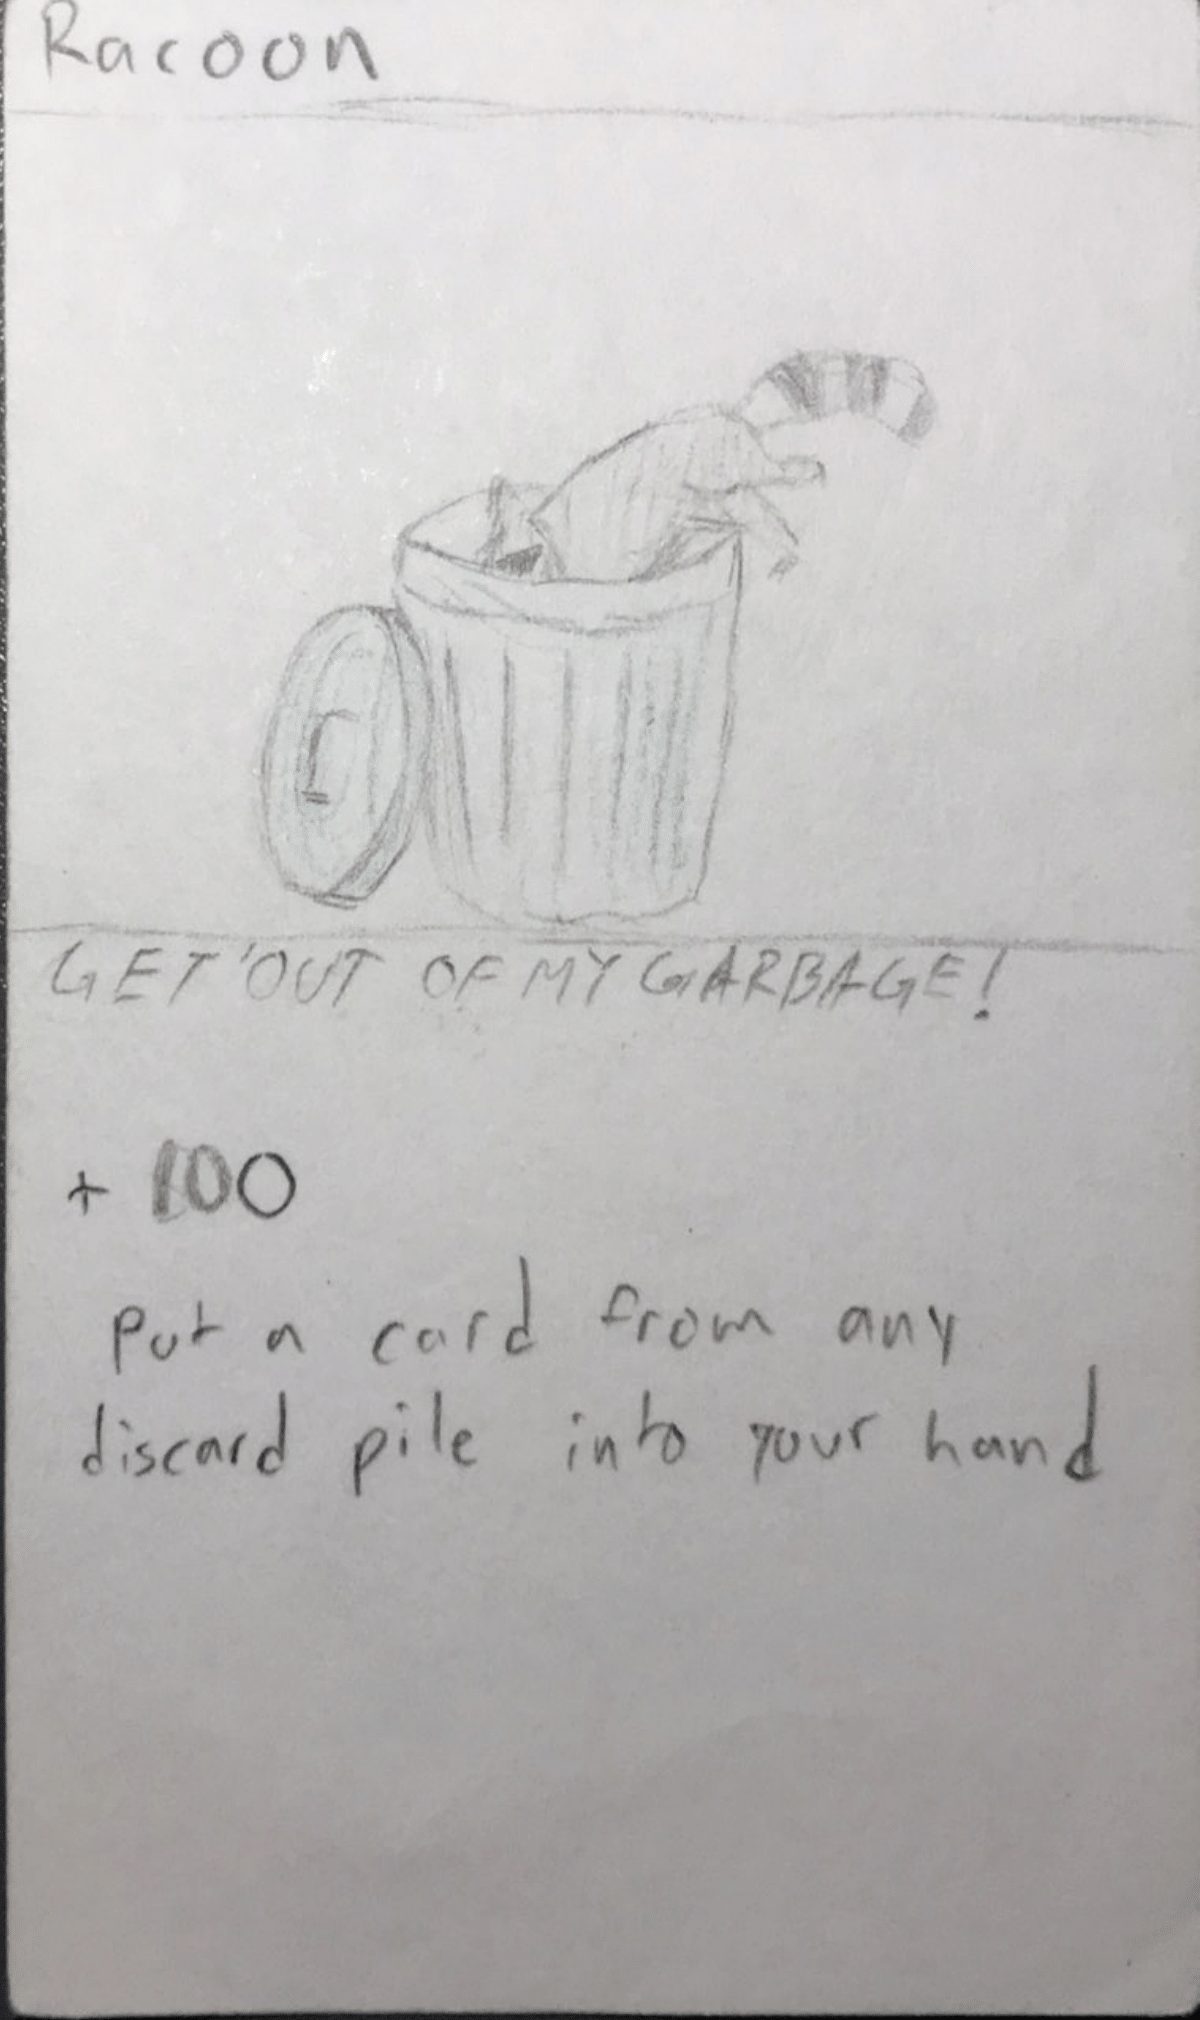 Racoon
GET OUT OF MY GARBAGE!
+ 100
put a card from any
discard pile into your hand